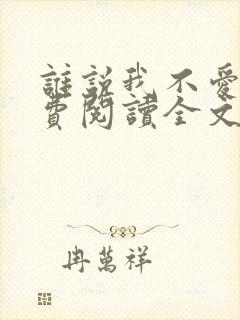 誰說我不愛
費閱讀全文
冉萬祥